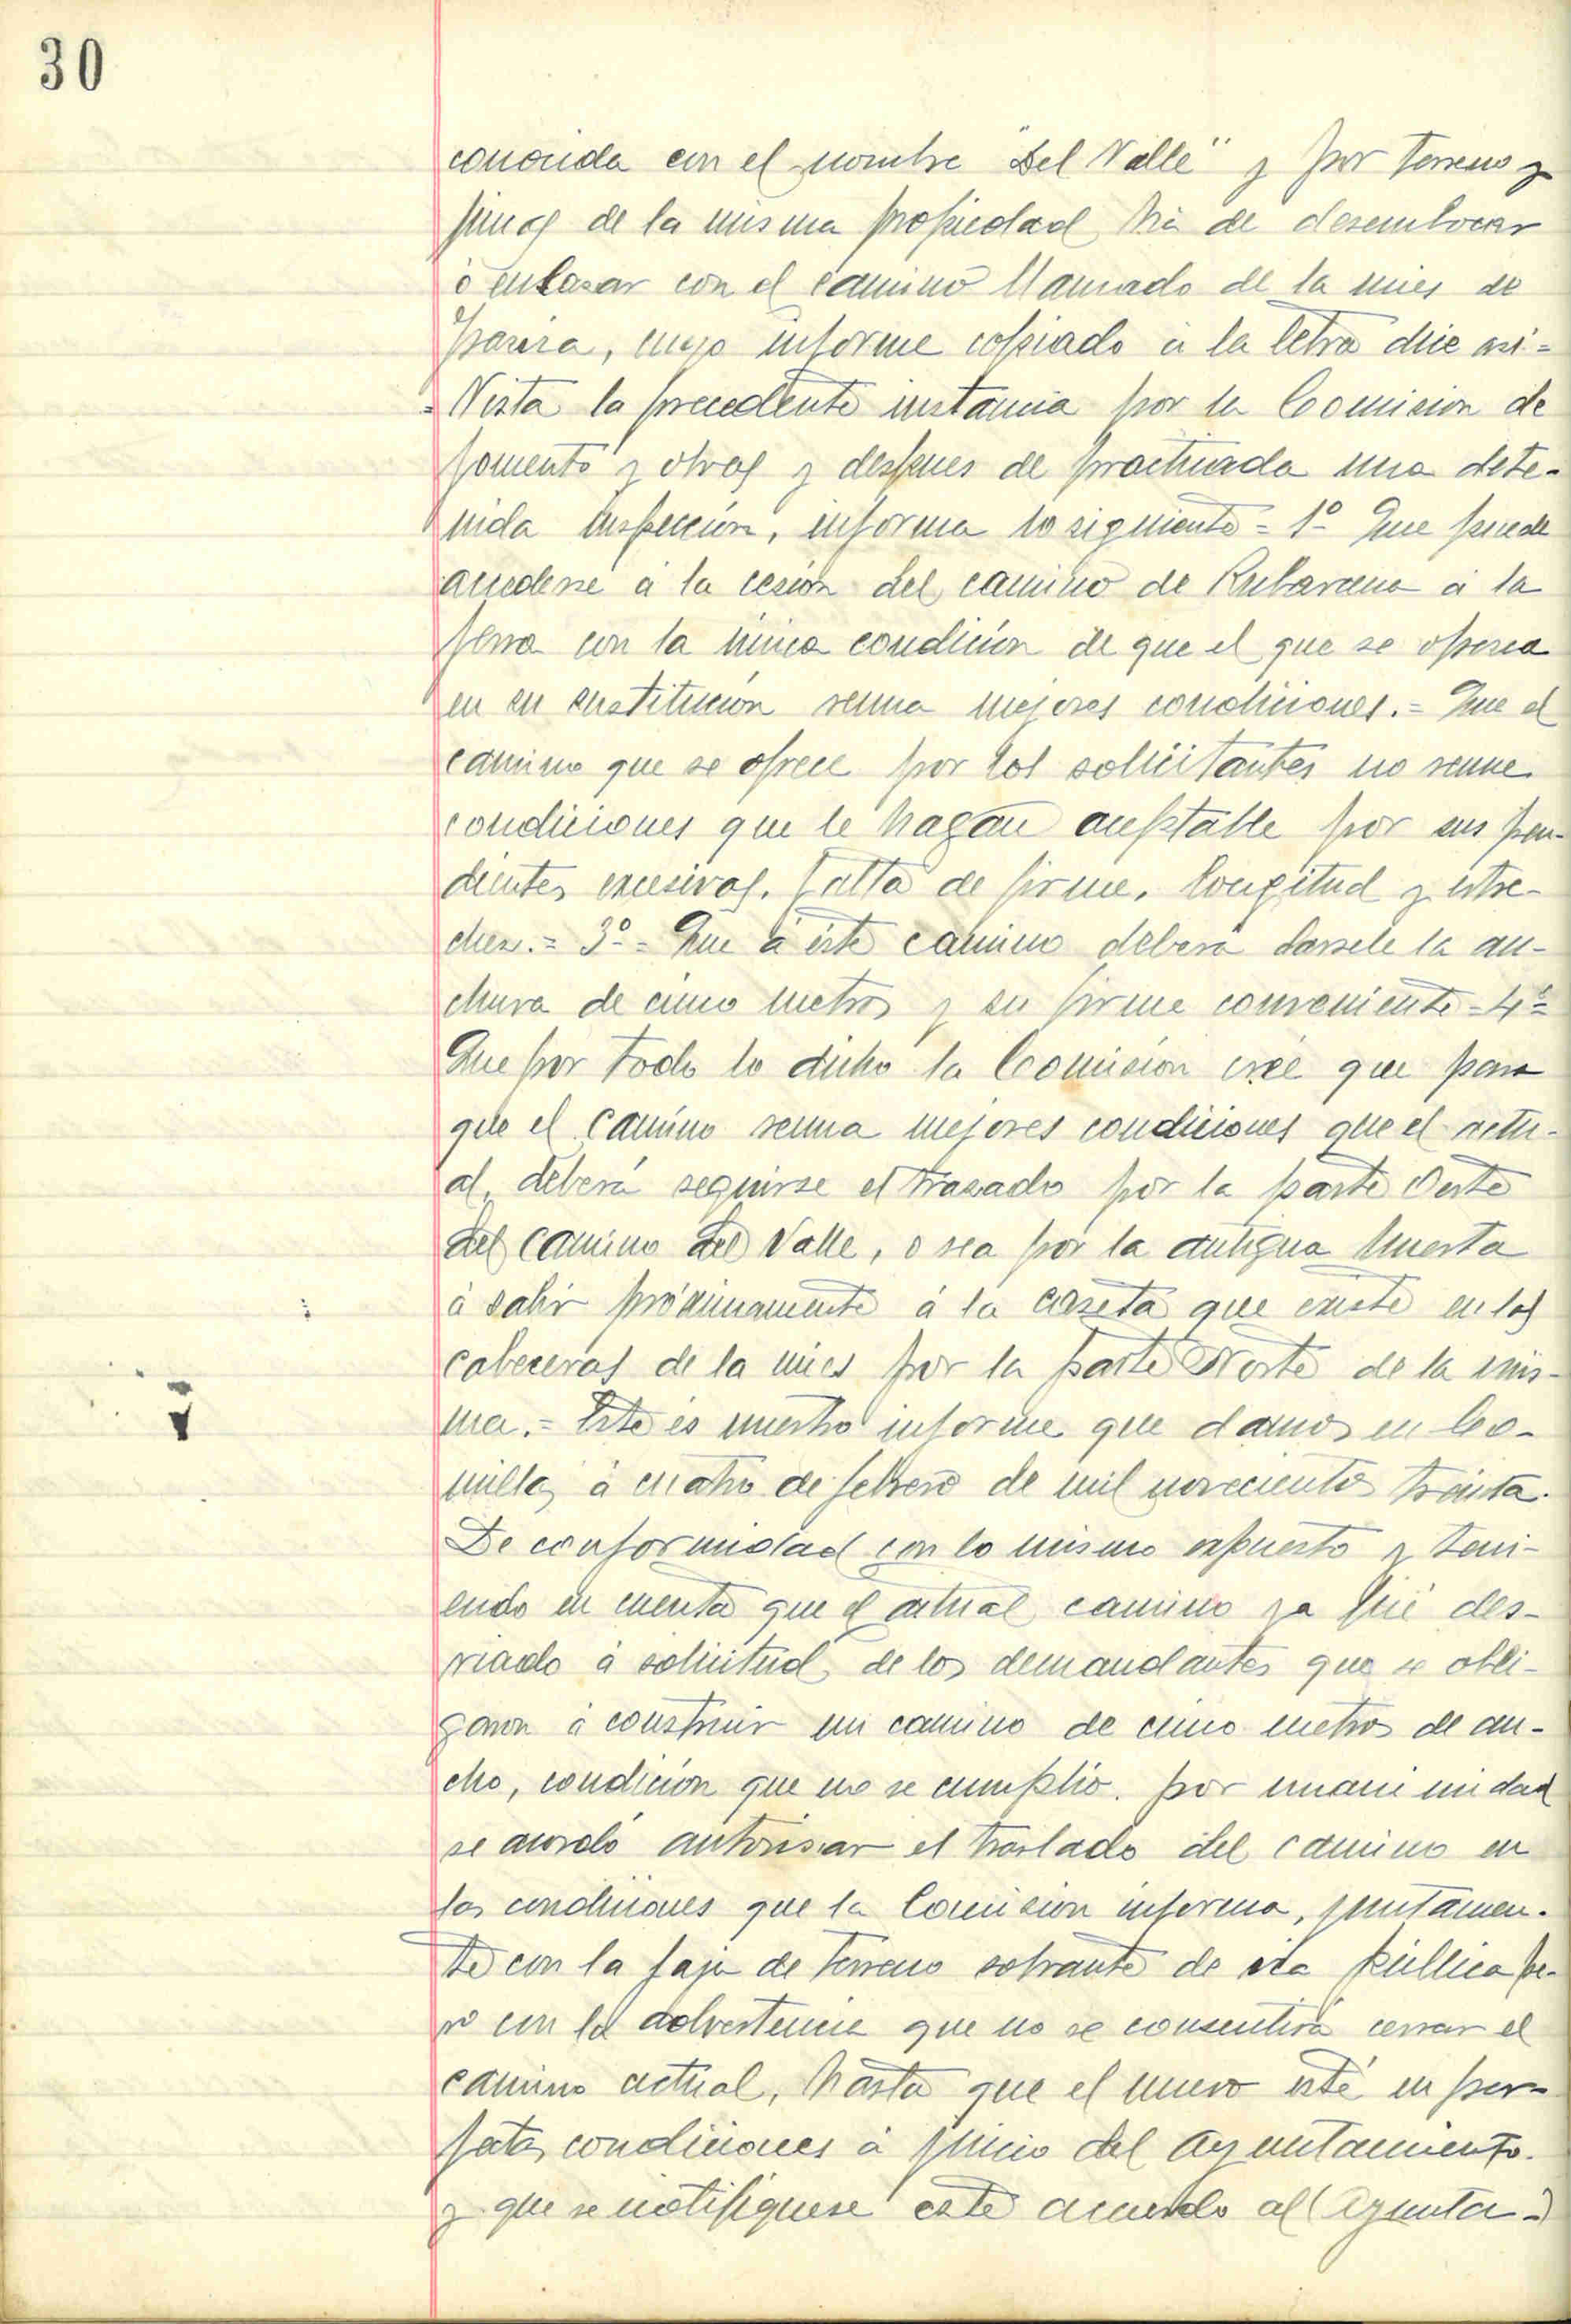 30
conocida con el nombre "Del Valle" y por terreno y
fincas de la misma propiedad há de desembocar
ó enlasar con el camino llamado de la mies de
cuyo informe copiado á la letra dice asi=
=Vista la precedente instancia por la Comision de
fomento y obras y despues de practicada una dete-
nida inspección, informa lo siguiente = 1º Que puede
accederse á la cesión del camino de Rubarcena á la
con la única condición de que el que se oferca
en su sustitución reuna mejores condiciones.= Que el
camino que se ofrece por los solicitantes no reune
condiciones que le hagan aceptable por sus pen-
dientes excesivas, falta de firme, longitud y estre-
chez.= 3º= Que á éste camino deberá darsele la an-
chura de cinco metros y su firme conveniente=4º=
Que por todo lo dicho la Comisión creé que para
que el camino reuna mejores condiciones que el actu-
al, deberá seguirse el trazado por la parte Oeste
del camino del Valle, o sea por la antigua huerta
á salir próximamente á la caseta que existe en las
cabeceras de la mies por la parte Norte de la mis-
ma.= Este es nuestro informe que damos en Co-
millas á cuatro de febrero de mil novecientos treinta.
De conformidad con lo mismo expuesto y teni-
endo en cuenta que el actual camino ya fué des-
viado á solicitud de los demandantes que se obli-
garon á construir un camino de cinco metros de an-
cho, condición que no se cumplio. por unanimidad
se acordó autorisar el traslado del camino en
las condiciones que la Comision informa, juntamen-
te con la faja de terreno sobrante de via pública pe-
ro con la advertencia que no se consentirá cerrar el
camino actual, hasta que el nuevo esté en per-
fectas condiciones á juicio del Ayuntamiento.
y que se notifiquese este acuerdo al Ayunta-